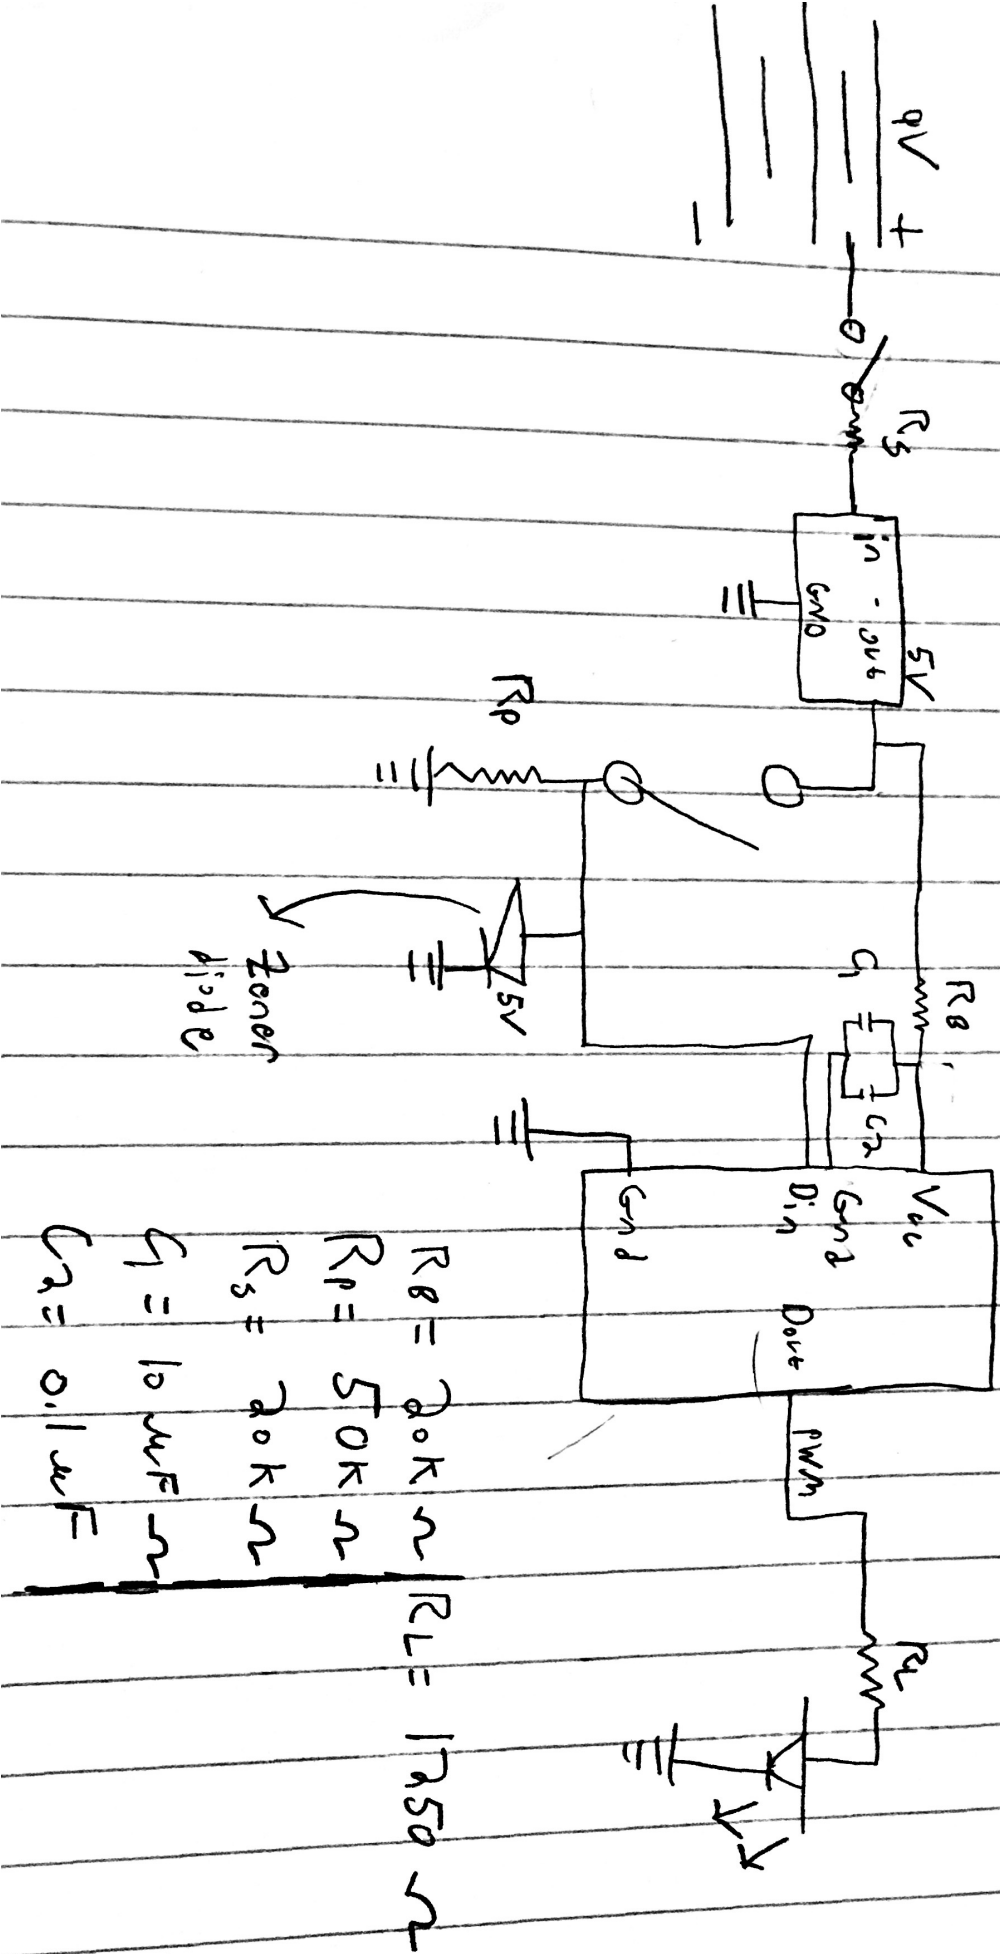 9V
+
−
Rs
in - out
GND
5V
Rp
5V
Zener
diode
RB
C1
C2
Vcc
Gnd
Din
Gnd
Dout
PWM
RL
RB = 20k Ω
Rp = 50k Ω
Rs = 20k Ω
C1 = 10 uF Ω
C2 = 0.1 uF
RL = 1250 Ω